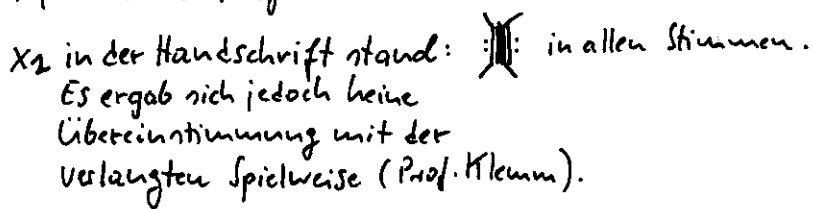 x2 in der Handschrift stand: :||: in allen Stimmen.
Es ergab sich jedoch keine
Übereinstimmung mit der
verlangten Spielweise (Prof. Klemm).